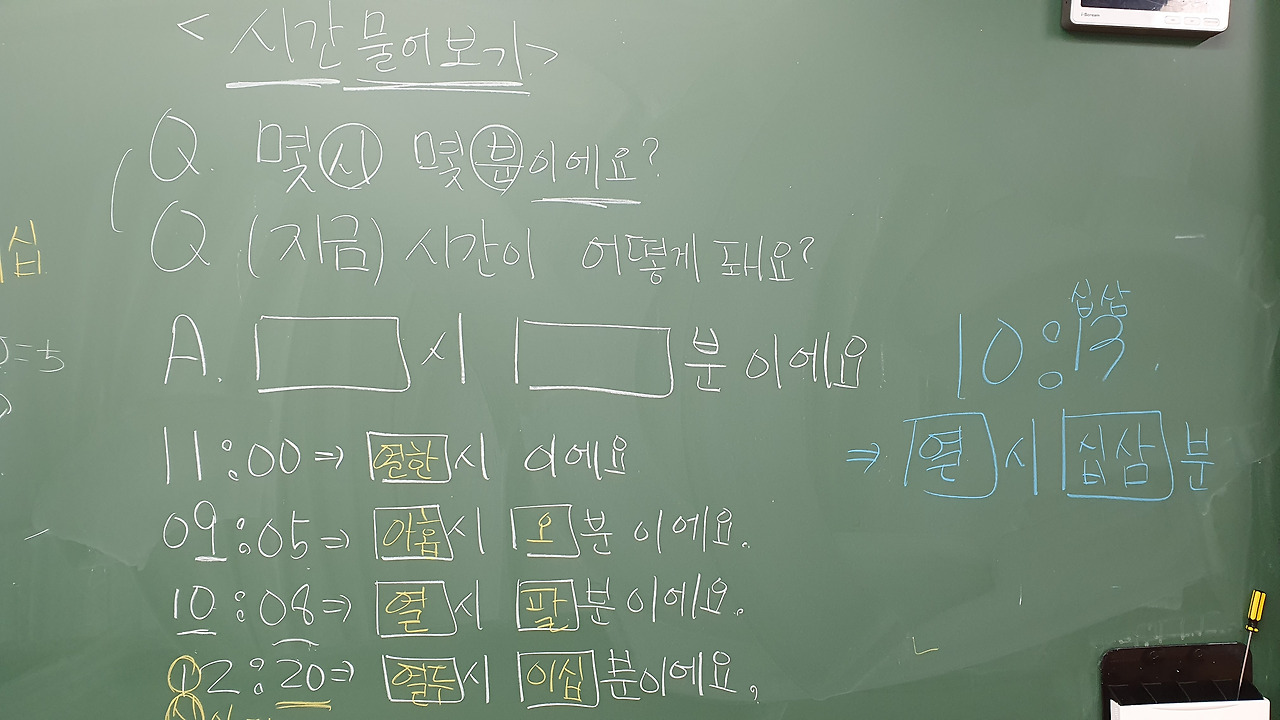 < 시간 물어보기 >
Q. 몇 시 몇 분이에요?
Q (지금) 시간이 어떻게 돼요?
A. 시 분 이에요
11:00 ⇒ 열한 시 이에요
09:05 ⇒ 아홉 시 오 분 이에요.
10:08 ⇒ 열 시 팔 분 이에요.
12:20 ⇒ 열두 시 이십 분이에요,
십삼
10:13
⇒ 열 시 십삼 분
십
i-Scream